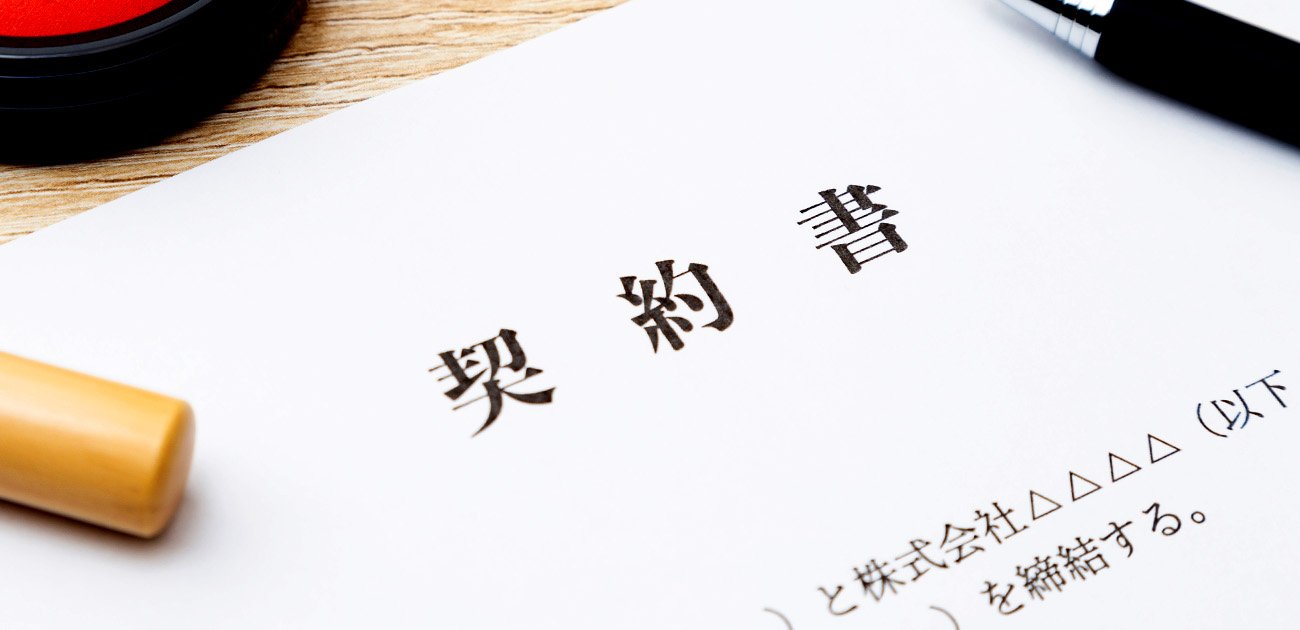 契約書
）と株式会社△△△△（以下
）を締結する。